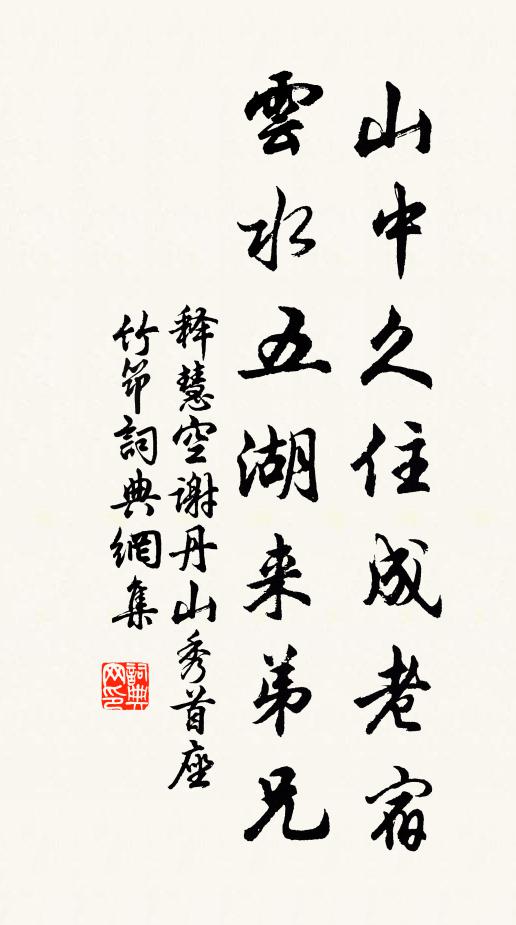 山中久住成老宿
雲水五湖来弟兄
释慧空谢丹山秀首座
竹節詞典網集
詞典网印